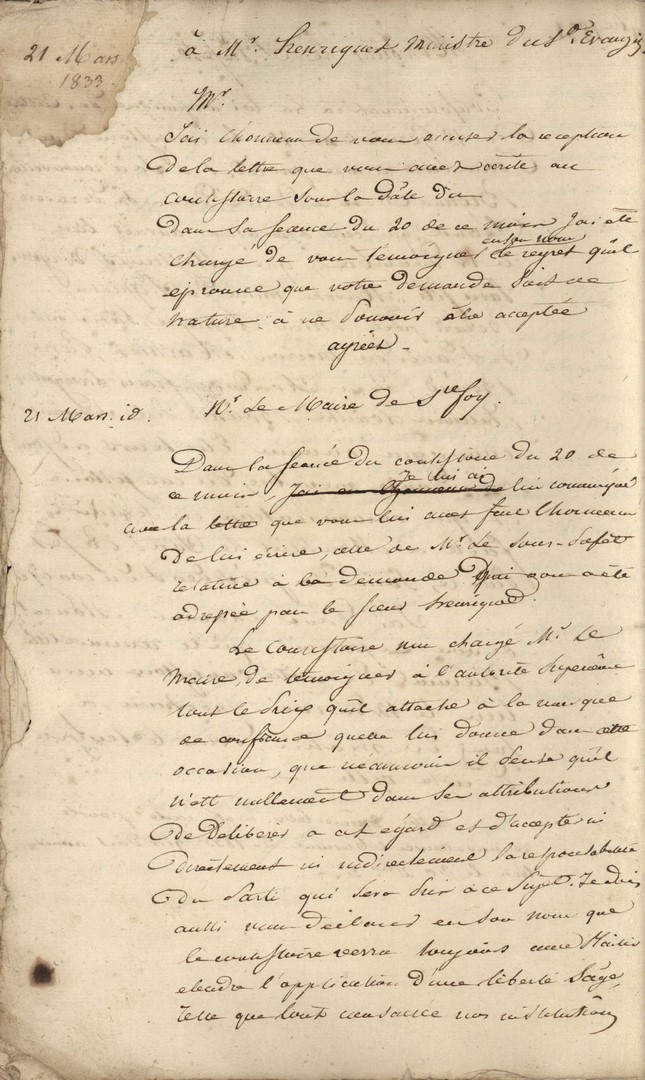 21 Mars
1833
à Mr. Henriquet Ministre du St. Evangile
Mr.
J'ai l'honneur de vous accuser la reception
de la lettre que vous avez écrite au
consistoire sous la date du
dans sa seance du 20 de ce mois J'ai été
en son nom
chargé de vous temoigner le regret qu'il
eprouve que votre demande soit de
nature à ne Pouvoir être acceptée
agréer -
21 Mars id.
Mr. Le Maire de Ste foy.
Dans la seance du consistoire du 20 de
je lui ai
ce mois, J'ai eu l'honneur de lui communiqué
avec la lettre que vous lui avez fait l'honneur
De lui écrire, celle de Mr. Le Sous-Prefet
relative à la demande qui vous a été
adressée par le sieur henriquet.
Le Consistoire me charge Mr. Le
Maire de témoigner à l'autorité Superieure
tout le Prix qu'il attache à la marque
de confiance qu'elle lui donne dans cette
occasion, que néanmoins il Pense qu'il
n'est nullement dans ses attributions
De Deliberer a cet égard et d'accepter ni
directement ni indirectement la responsabilité
Du Parti qui sera Pris à ce Sujet. Je dois
aussi vous déclarer en son nom que
le consistoire verra toujours avec Plaisir
etendre l'application d'une liberté Sage,
Telle que l'ont consacrée nos institutions